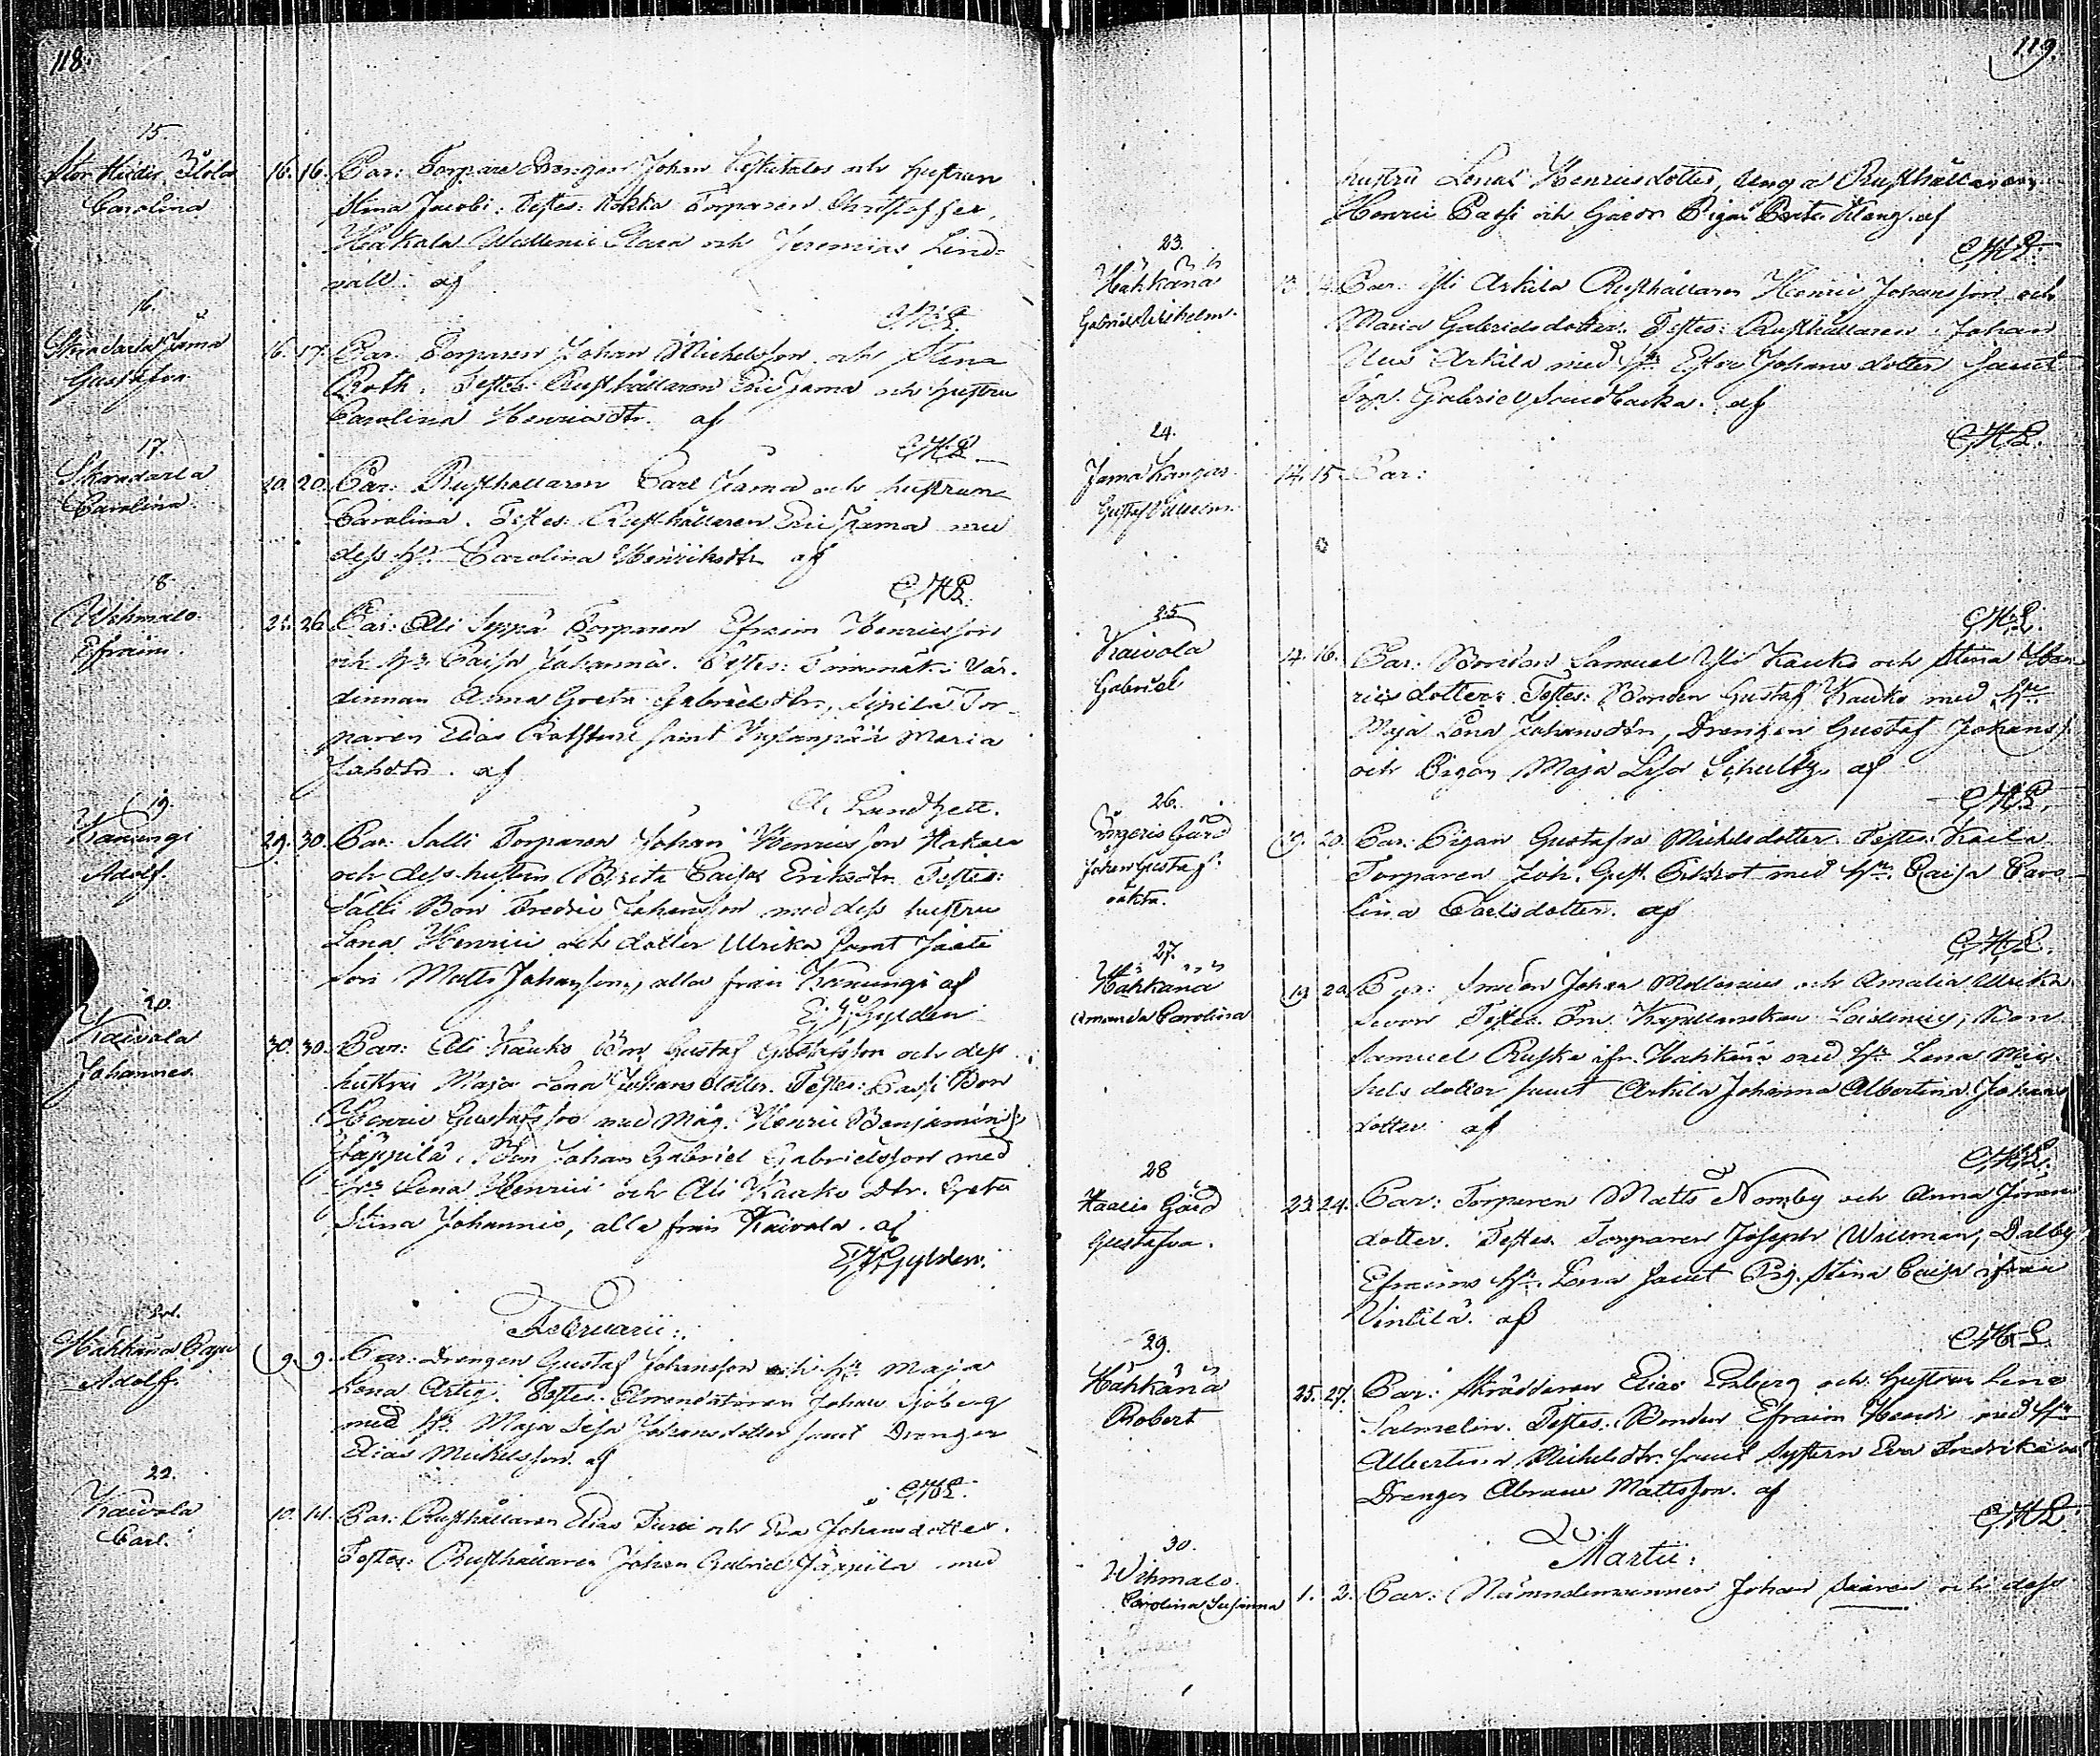 118.
15.
Stor Heidis Ylola
Carolina
16. 16. Par: Torpare Drengen Johan och hustrun
Stina Jacobi. Testes: Torparen Christoffer
Hakala Clara och Jeremias Lind=
vall. af
C.H.L.
16.
Skradarla Jama
Gustafva
16. 17. Par. Torparen Johan Michelsson och Stina
Roth. Testes: Rusthållaren Eric Jama och hustru
Carolina Henricsdtr. af
C.H.L.
17.
Skradarla
Carolina
20. 20. Par: Rusthållaren Carl Jama och hustrun
Carolina. Testes: Rusthållaren Eric Jama med
dess hu Carolina Henriksdtr af
C.H.L.
18.
Wehmalo
Efraim.
25. 26. Par: Ali Seppä Torparen Efraim Henricsson
och hu Caisa Johannis. Testes: Vär-
dinnan Anna Greta Gabrielsdtr, Sipilä Tor-
paren Elias samt Maria
af
Lundzell.
19.
Kanungi
Adolf.
29. 30. Par. Salli Torparen Johan Henricsson Hakala
och dess hustru Brita Caisa Eriksdtr. Testes:
Sälli Bon Fredric Johansson med dess hustru
Lena Henrici och dotter Ulrika samt Jaati
son Matts Johansson, alla från Kanungi af
Gylden
20.
Kaivola
Johannes.
30. 30. Par: Ali Kauko Bon Gustaf Gustafsson och dess
hustru Maja Lena Johansdotter. Testes: Passi Bon
Henric Gustafsson med Måg. Henric Benjamins.
Jäppilä, Bon Johan Gabriel Gabrielsson med
hu Lena Henrici och Ali Kauko Dtr. Greta
Stina Johannis, alla från Kaivola. af
Gylden.
Februarii:
21.
Hähkänä Paju
Adolf.
9. 9. Par: Drengen Gustaf Johansson och hu Maja
Lena Artig. Testes. Arrendatoren Johan Sjöberg
med hu Maja Lesa Johansdotter samt Drengen
Elias Mickelsson. af
C.H.L.
22.
Kaivola
Carl.
10. 11. Par: Rusthållaren Elias Turri och Eva Johansdotter.
Testes: Rusthållaren Johan Gabriel Jäppilä med
119.
hustru Lena Henricsdotter, Unga Rusthållaren
Henric Passi och Gårds Pigan Brita Klang. af
C.H.L.
23.
Hähkänä
Gabriel Wilhelm.
13. 14. Par: Yli Arkila Rusthållaren Henric Johansson och
Maria Gabrielsdotter. Testes: Rusthållaren Johan
Arkila med hu Ester Johansdotter samt
Trp. Gabriel Sandbacka. af
C.H.L.
24.
Jama Kangas
Gustaf Wilhelm.
14. 15. Par:
C.H.L.
25
Kaivola
Gabriel
14. 16. Par: Bonden Samuel Yli Kauko och Stina Hen
ricsdotter: Testes: Bonden Gustaf Kauko med hu
Maja Lena Johansdtr, Drengen Gustaf Johans.
och Pigan Maja Lisa Schultz. af
C.H.L.
26.
Gård
Johan Gustaf.
oäkta.
19. 20. Par: Pigan Gustafva Michelsdotter. Testes: Kaila
Torparen Joh. Gust. med hu Caisa Caro
lina Carlsdotter. af
C.H.L.
27.
Hähkänä
Amanda Carolina
19. 20. Par: Smeden Johan Mollonius och Amalia Ulrika
Testes. Fru Kapellanskan Bon
Samuel Ruska ifr. Hähkänä med hu Lena Mic
helsdotter samt Arkila Johanna Albertina Johans
dotter af
C.H.L.
28
Haalis Gård
Gustafva.
23. 24. Par: Torparen Matts Nomby och Anna Jörans
dotter. Testes. Torparen Joseph Willman, Dalby
Efraims hu Lena samt Pig. Stina Caisa ifrån
Vintilä. af
C.H.L.
29.
Hähkänä
Robert
25. 27. Par: Skräddaren Elias Enberg och hustrun Lena
Salmelin. Testes: Bonden Efraim Heurdi med hu
Albertina Michelsdtr. samt Systern Eva Fredrika o.
Drengen Abram Mattsson. af
C.H.L.
Martii:
30.
Wehmalo
Carolina Susanna
1. 2. Par: Nämndemannen Johan Saaren och dess